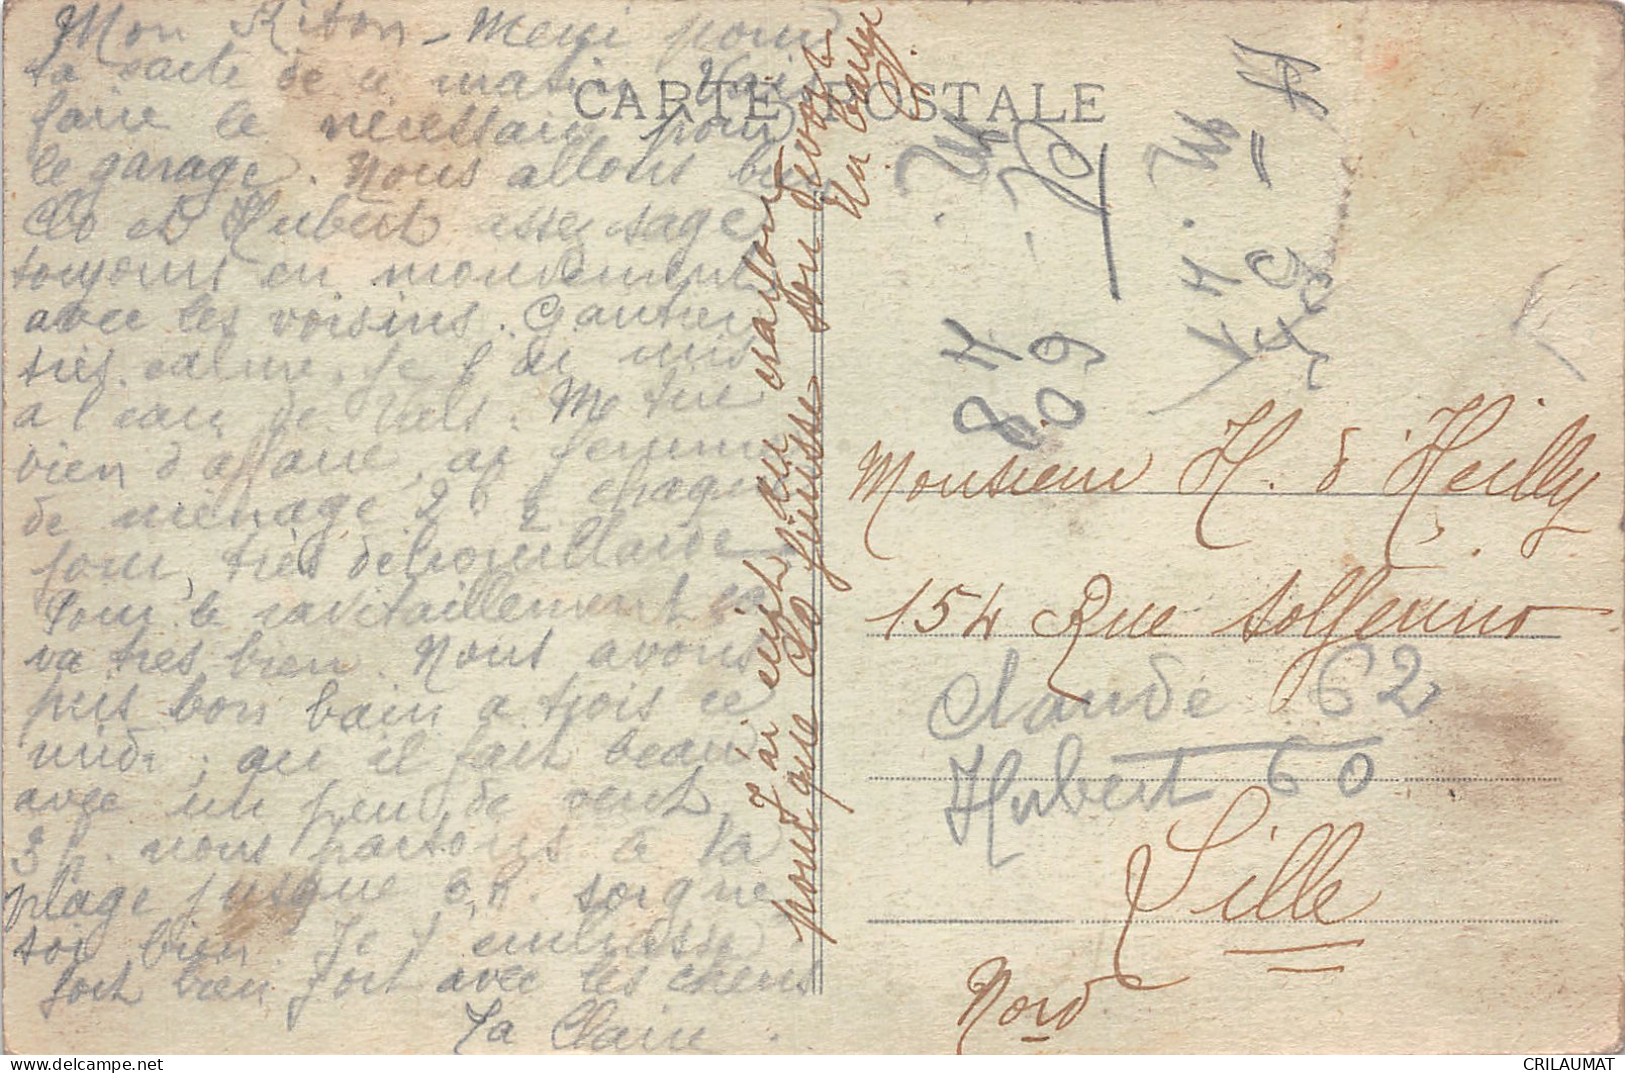 Mon Riton - Merci pour
ta carte de ce matin. Vais
faire le nécessaire pour
le garage. Nous allons bien
Clo et Hubert assez sage
toujours en mouvement
avec les voisins. Gautier
très calme, je l'ai mis
à l'eau de Vals. Me tire
bien d'affaire, ai femme
de ménage 2 h ½ chaque
jour, très débrouillarde
Pour le ravitaillement ça
va très bien. Nous avons
pris bon bain a trois ce
midi, ou il fait beau
avec un peu de vent
3 h. nous partons à la
plage jusque 6 h. soigne
toi bien. Je t'embrasse
fort bien fort avec les chéris
Ta Claire.
J'ai écrit au crayon
pour que Clo puisse son devoir
En vaisy.
CARTE POSTALE
Monsieur H. d'Heilly
154 Rue Solferino
Claude 62
Hubert 60
Lille
Nord
CRILAUMAT